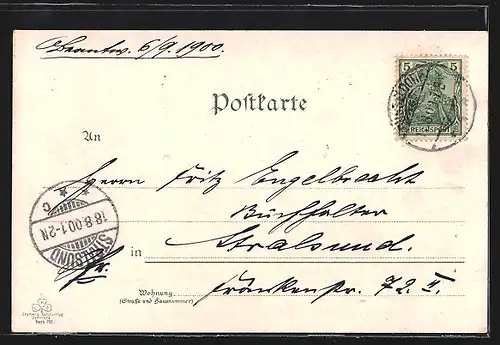 Beantw. 6/9. 1900.
5 5
REICHSPOST
Postkarte
An
Herrn Fritz Engelbrecht
Buchhalter
STRALSUND
18.8.00.1-2N
* c *
in Stralsund.
Wohnung Frankenstr. 72. II.
(Straße und Hausnummer)